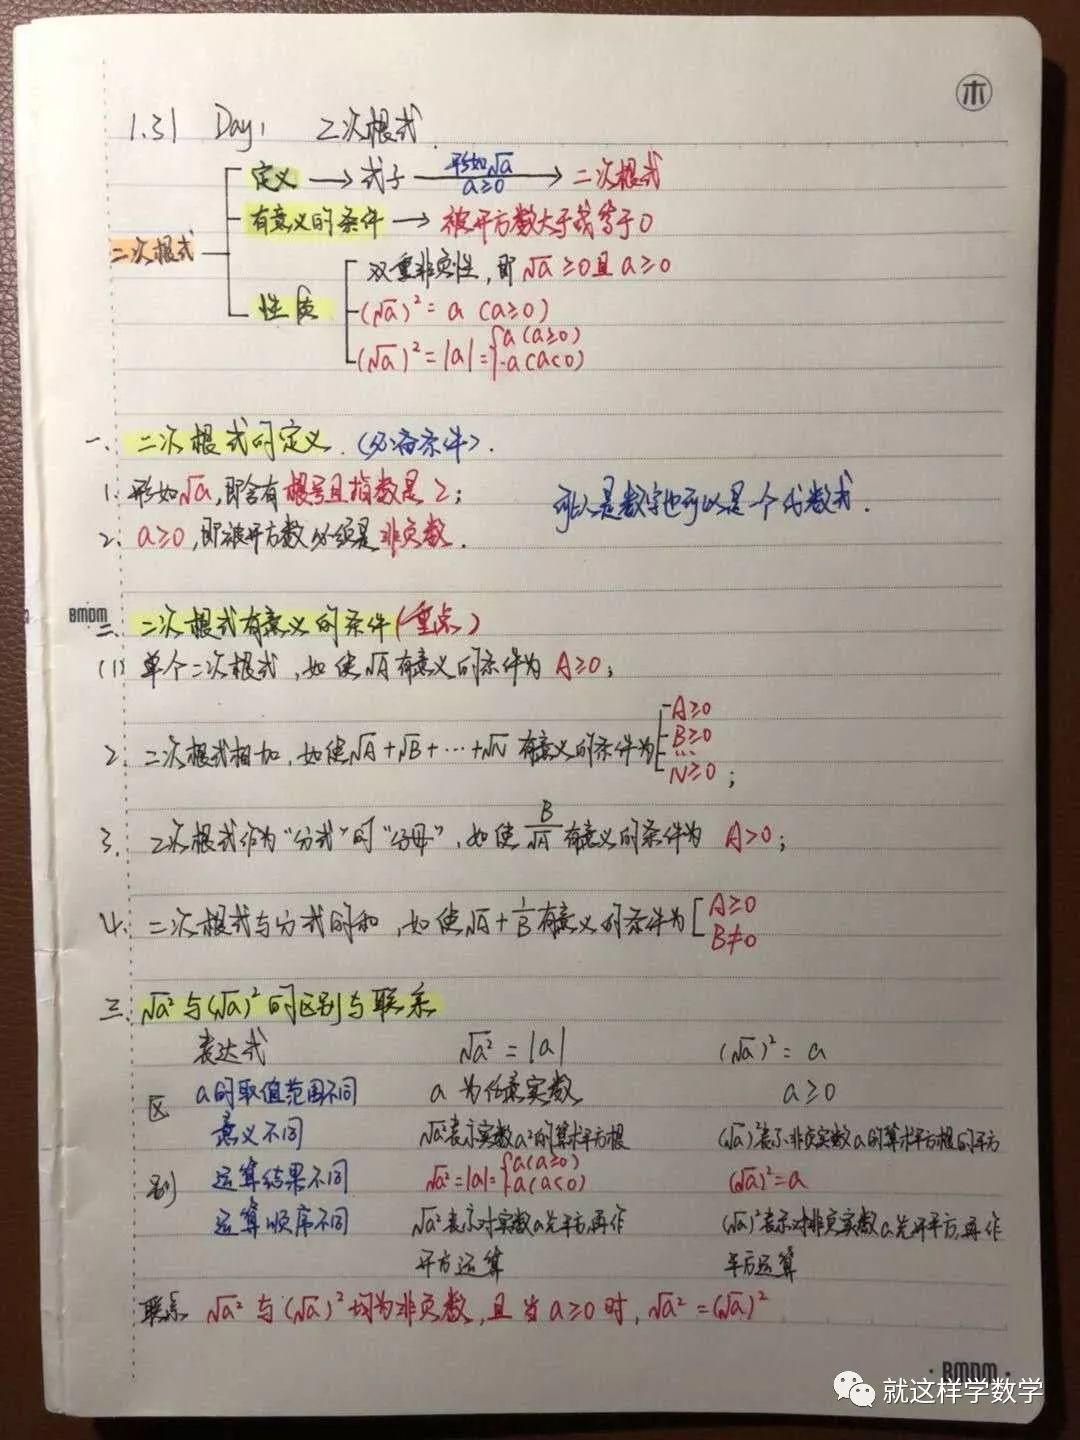 木
1.31 Day1 二次根式
定义 → 式子 形如√a a≥0 → 二次根式
有意义的条件 → 被开方数大于或等于0
二次根式
双重非负性，即 √a ≥0且 a≥0
性质
(√a)² = a (a≥0)
(√a)² = |a| = { a (a≥0)
-a (a<0)
一、二次根式的定义．(必备条件)．
1. 形如√a，即含有根号且指数是2；
可以是数字也可以是一个代数式．
2. a≥0，即被开方数必须是非负数．
BMDM
二、二次根式有意义的条件(重点)
(1) 单个二次根式，如使√A有意义的条件为 A≥0；
2. 二次根式相加，如使√A+√B+…+√N 有意义的条件为 [ A≥0
B≥0
…
N≥0；
3. 二次根式作为“分式”的“分母”，如使 B/√A 有意义的条件为 A>0；
4. 二次根式与分式的和，如使√A + 1/B 有意义的条件为 [ A≥0
B≠0
三、√a² 与(√a)² 的区别与联系
表达式 √a² = |a| (√a)² = a
区 a的取值范围不同 a 为任意实数 a≥0
意义不同 √a²表示实数a²的算术平方根 (√a)²表示非负实数a的算术平方根的平方
别 运算结果不同 √a²=|a|={ a(a≥0) -a(a<0) (√a)²=a
运算顺序不同 √a²表示对实数a先平方，再作 (√a)²表示对非负实数a先开平方，再作
开方运算 平方运算
联系 √a² 与 (√a)² 均为非负数，且当 a≥0 时，√a² = (√a)²
·BMDM·
就这样学数学